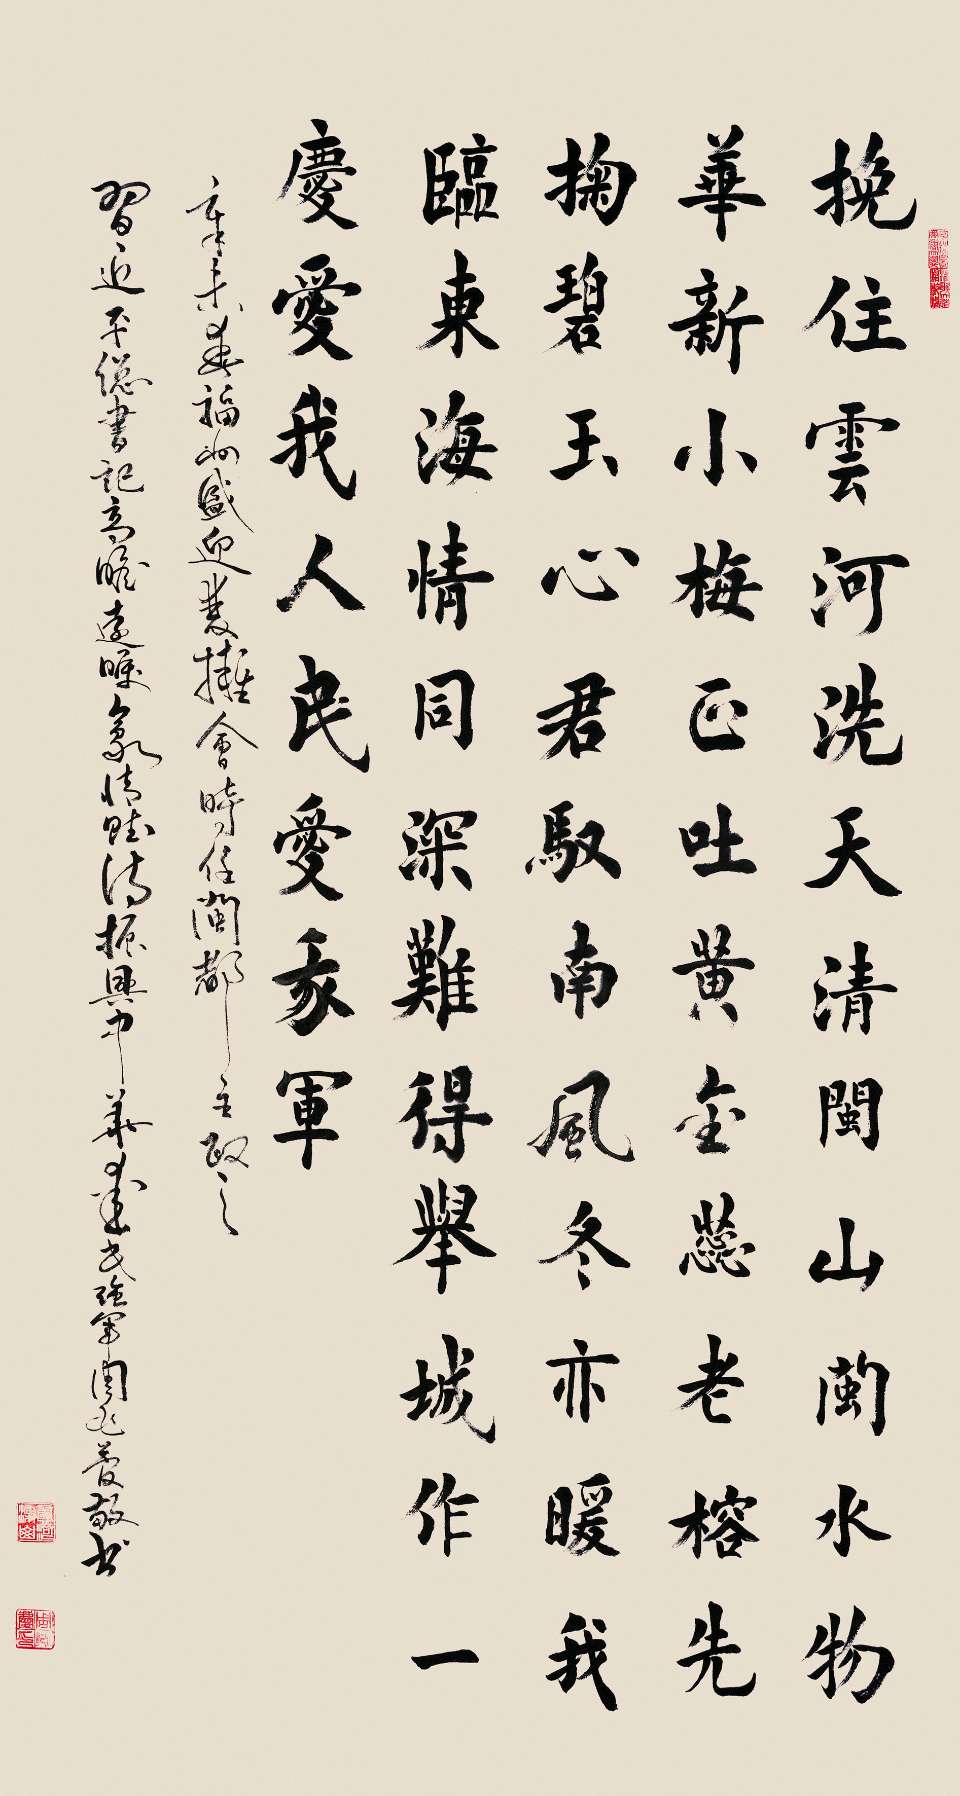 挽住雲河洗天清閩山閩水物
華新小梅正吐黃金蕊老榕先
掬碧玉心君馭南風冬亦暖我
臨東海情同深難得舉城作一
慶愛我人民愛我軍
辛未春福州盛迎雙擁會時任閩都主政之
習近平總書記高瞻遠矚豪情賦詩振興中華富民強軍閩
敬书